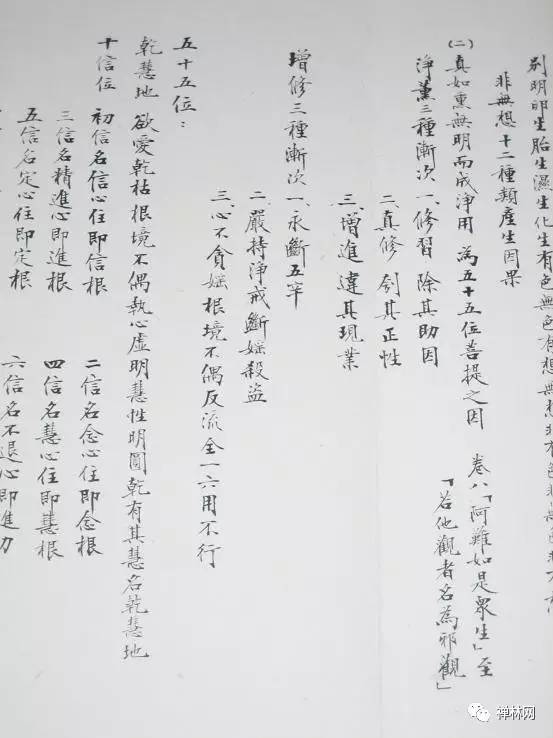 別明卵生胎生濕生化生有色無色有想無想非有色非無色非有想
非無想十二種類產生因果
(二)真如重無明而成淨用 為五十五位菩提之因 卷八「阿難如是眾生」至
「若他觀者名為邪觀」
淨薰三種漸次 一、修習 除其助因
二、真修 刳其正性
三、增進 違其現業
增修三種漸次 一、永斷五辛
二、嚴持淨戒斷婬殺盜
三、心不貪婬根境不偶反流全一六用不行
五十五位：
乾慧地 欲愛乾枯根境不偶執心虛明慧性明圓乾有其慧名乾慧地
十信位 初信名信心住即信根 二信名念心住即念根
三信名精進心即進根 四信名慧心住即慧根
五信名定心住即定根 六信名不退心即進力
禅林网